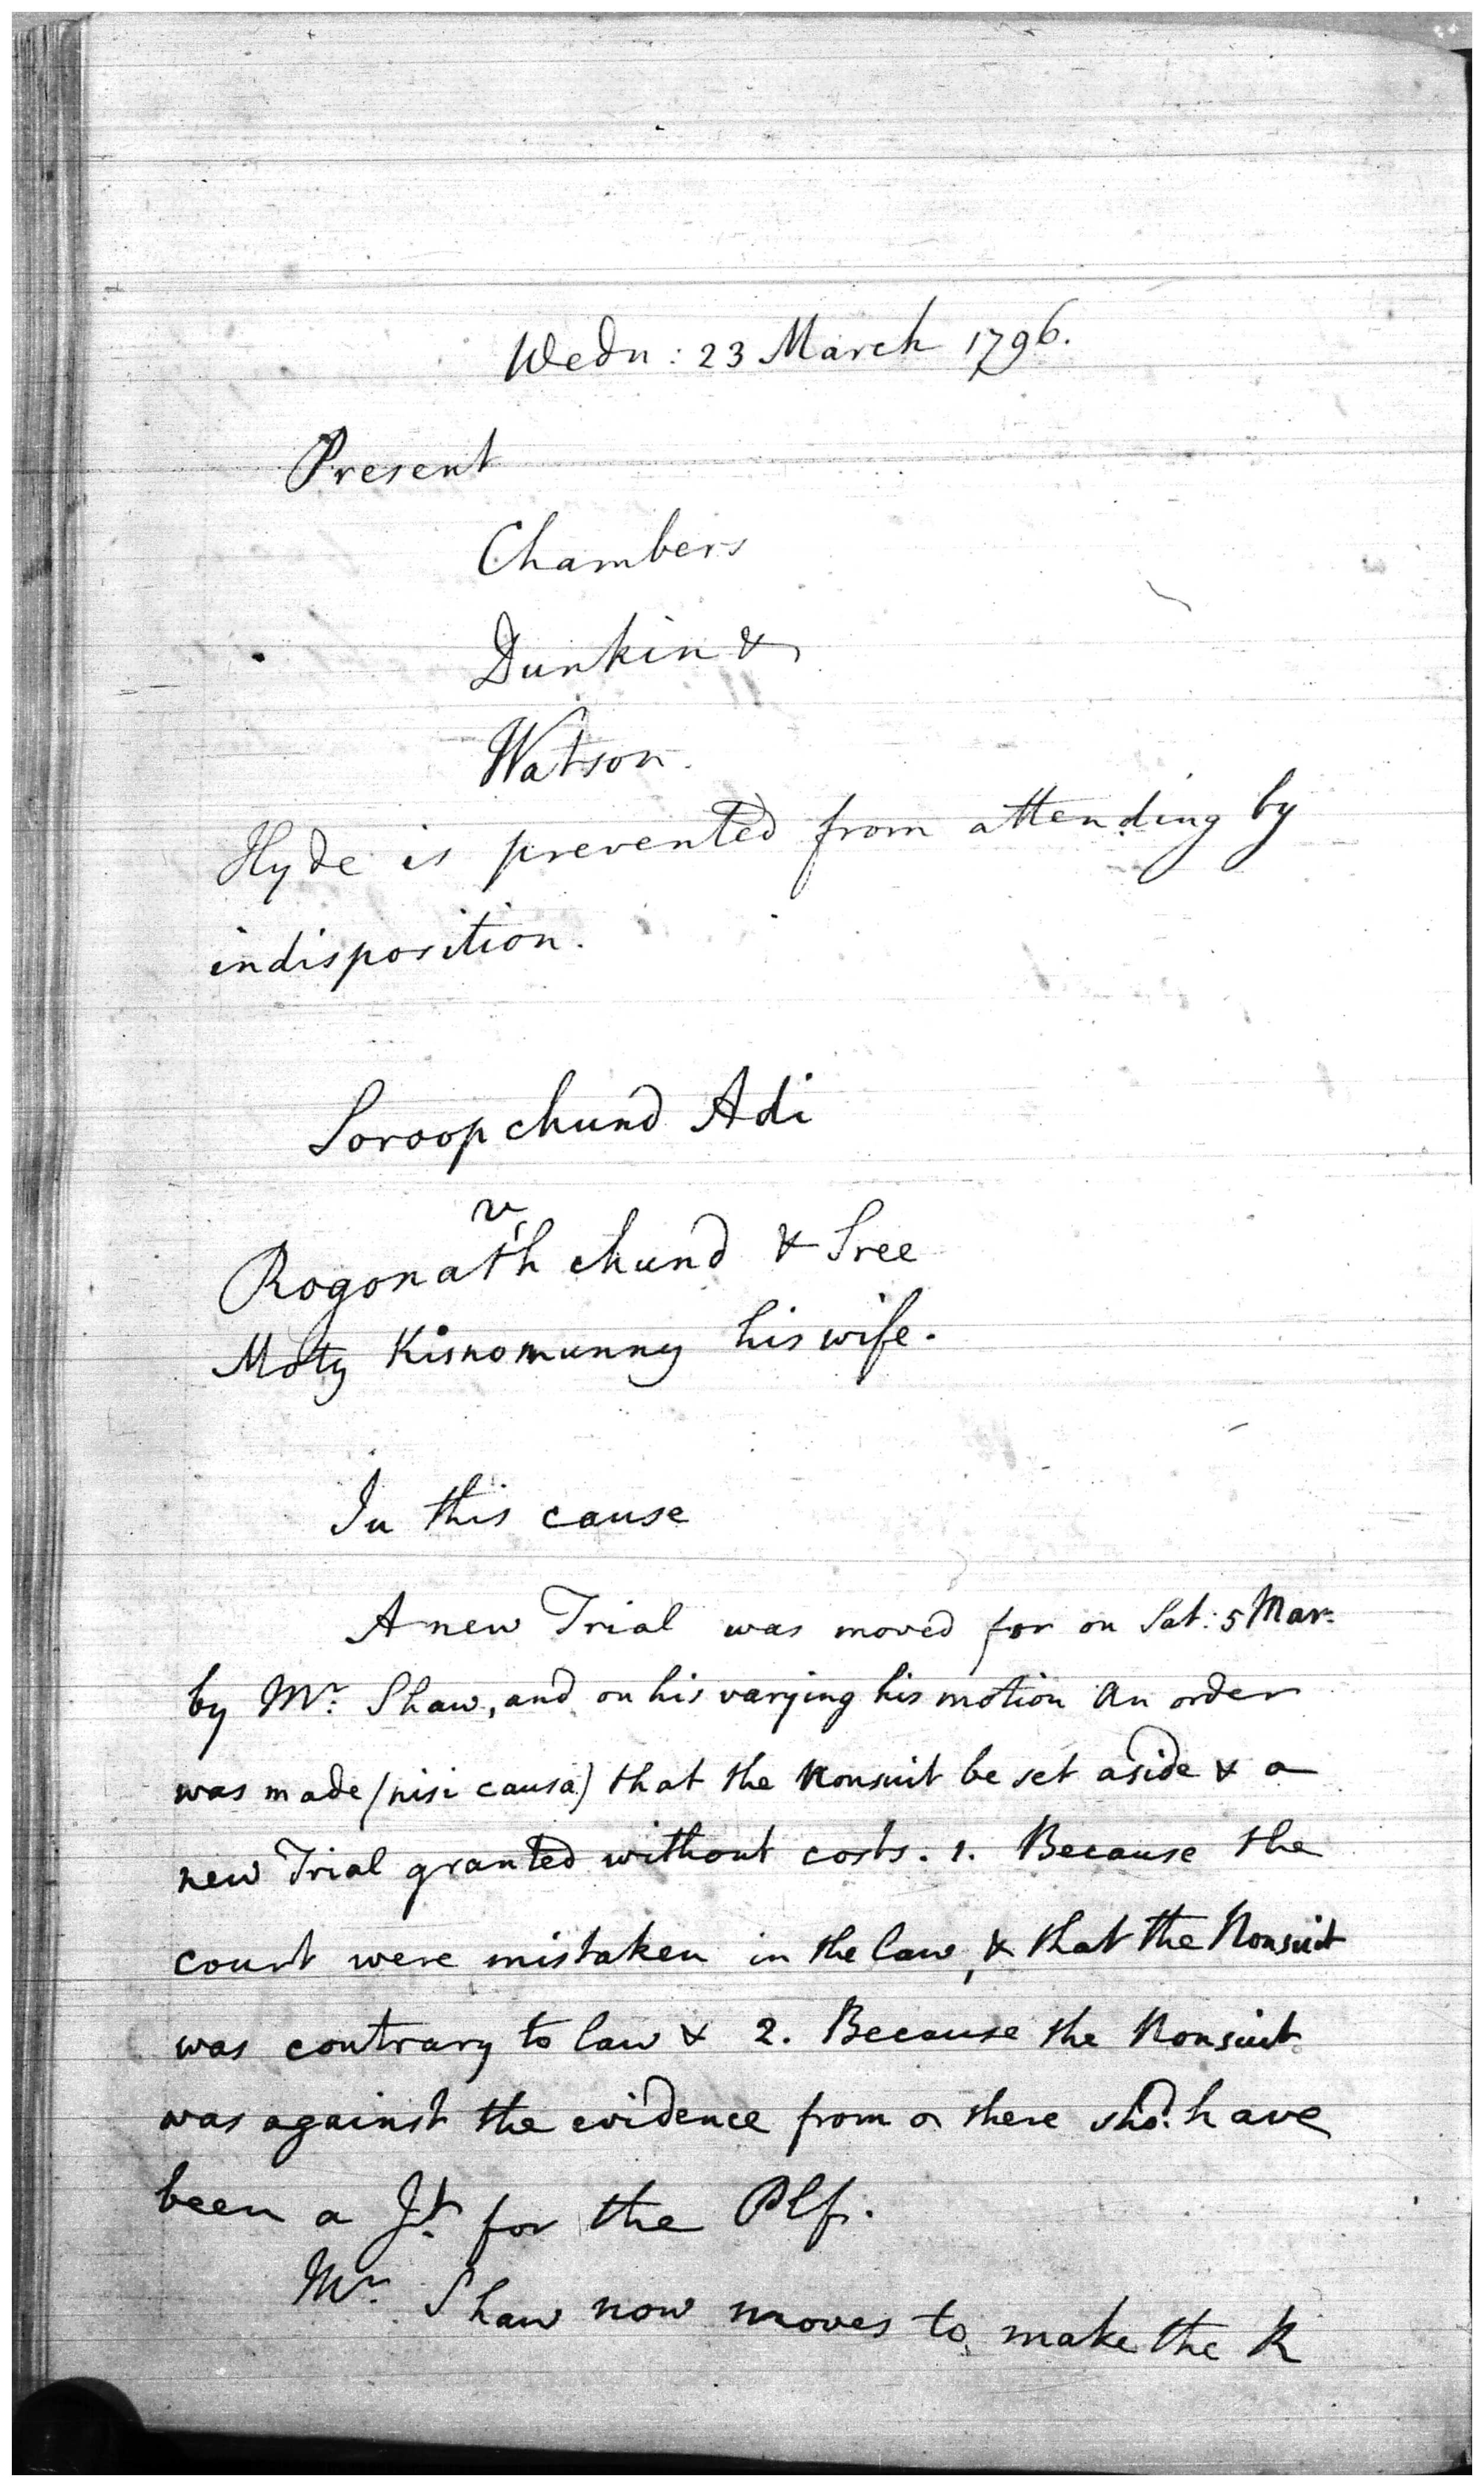 Wedn: 23 March 1796.
Present
Chambers
Dunkin &
Watson.
Hyde is prevented from attending by
indisposition.
Soroopchund Adi
v.
Rogonath chund & Sree
Moty Kisnomunny his wife.
In this cause
A new Trial was moved for on Sat: 5 Mar.
by Mr. Shaw, and on his varying his motion an order
was made (nisi causa) that the Nonsuit be set aside & a
new Trial granted without costs. 1. Because the
court were mistaken in the law, & that the Nonsuit
was contrary to law & 2. Because the Nonsuit
was against the evidence from there shd. have
been a Jt. for the Plf.
Mr. Shaw now moves to make the R